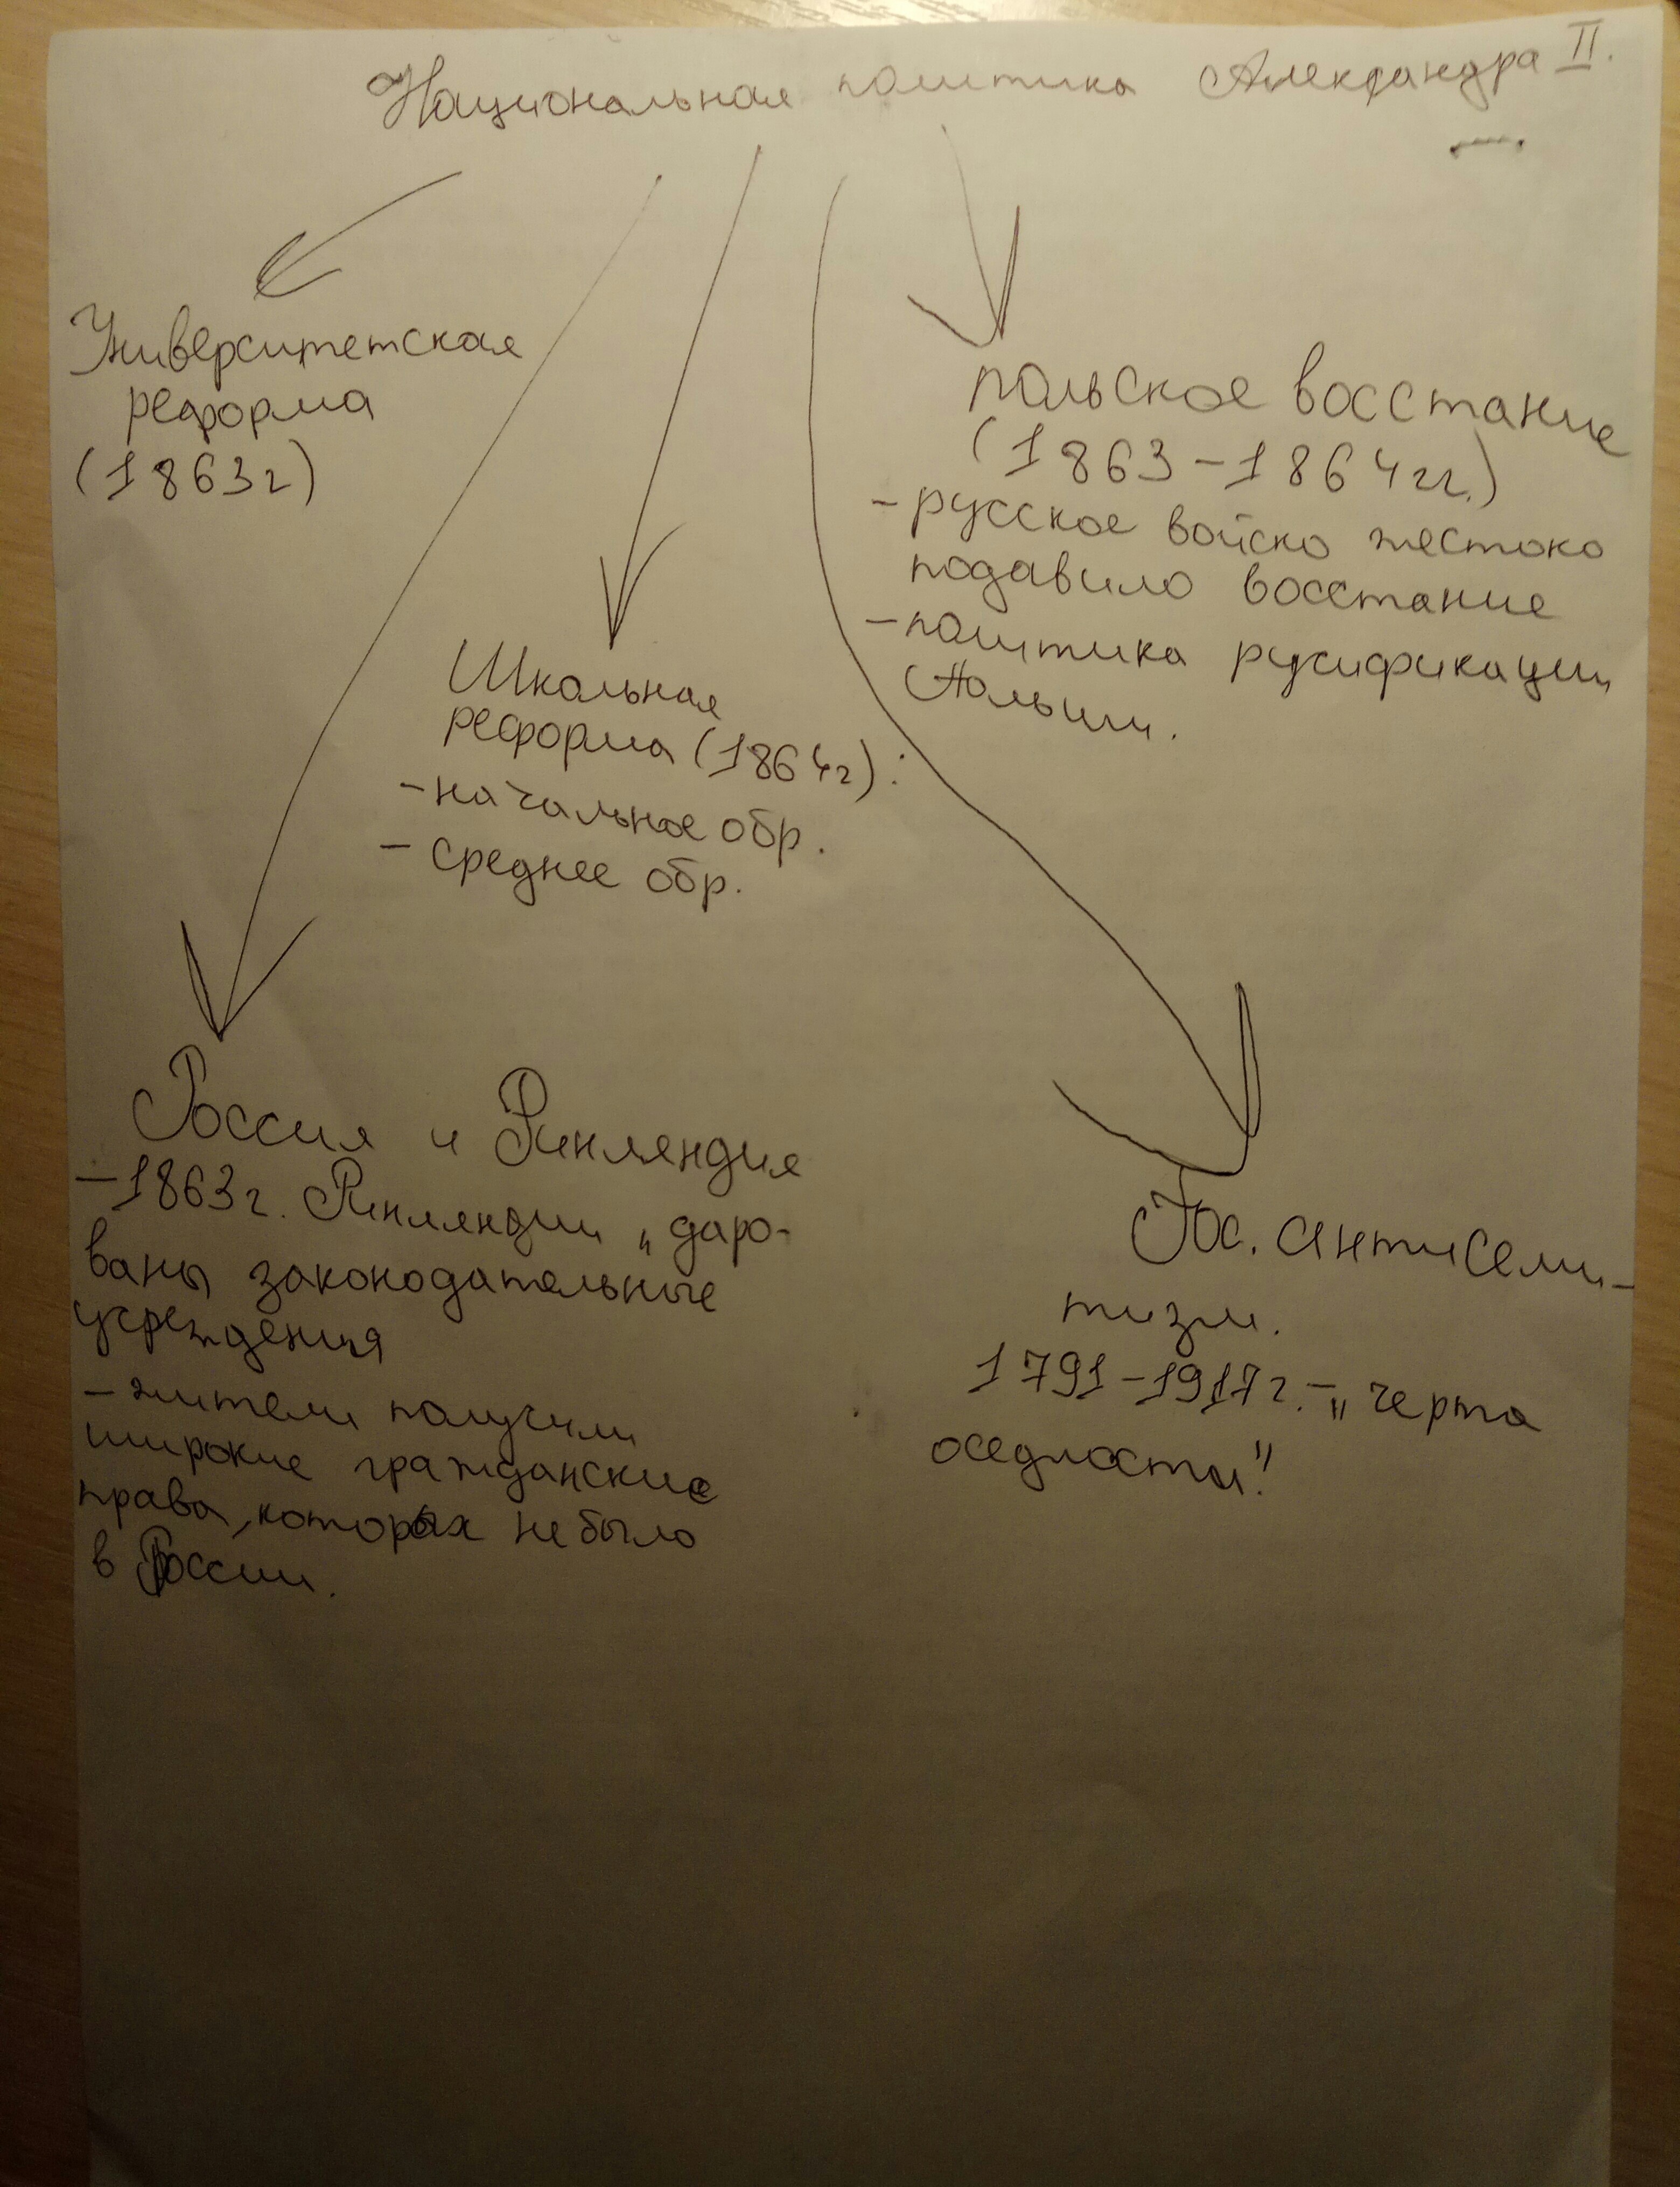 Национальная политика Александра II.
Университетская
реформа
(1863г)
Школьная
реформа (1864г):
- начальное обр.
- среднее обр.
польское восстание
(1863-1864гг.)
- русское войско жестоко
подавило восстание
- политика русификации
Польши.
Россия и Финляндия
- 1863г. Финляндии „даро-
ваны законодательные
учреждения
- жители получили
широкие гражданские
права, которых не было
в России.
Гос. антисеми-
тизм.
1791-1917г. - „черта
оседлости"